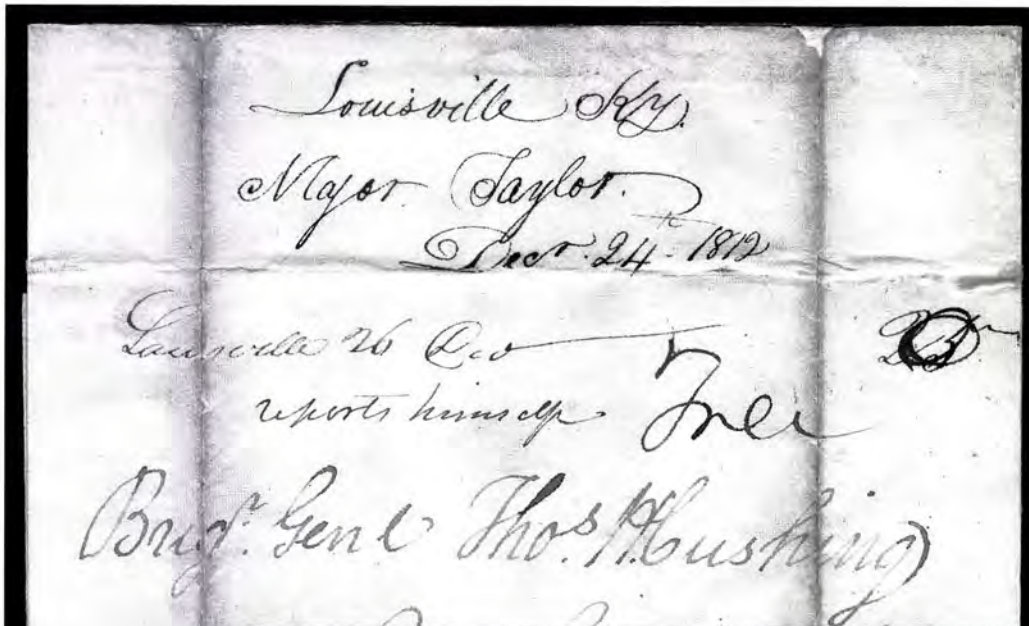 Louisville Ky.
Major Taylor.
Decr. 24th 1812
Louisville 26 Dec
reports himself Free
Brigr. Genl Thos. H. Cushing